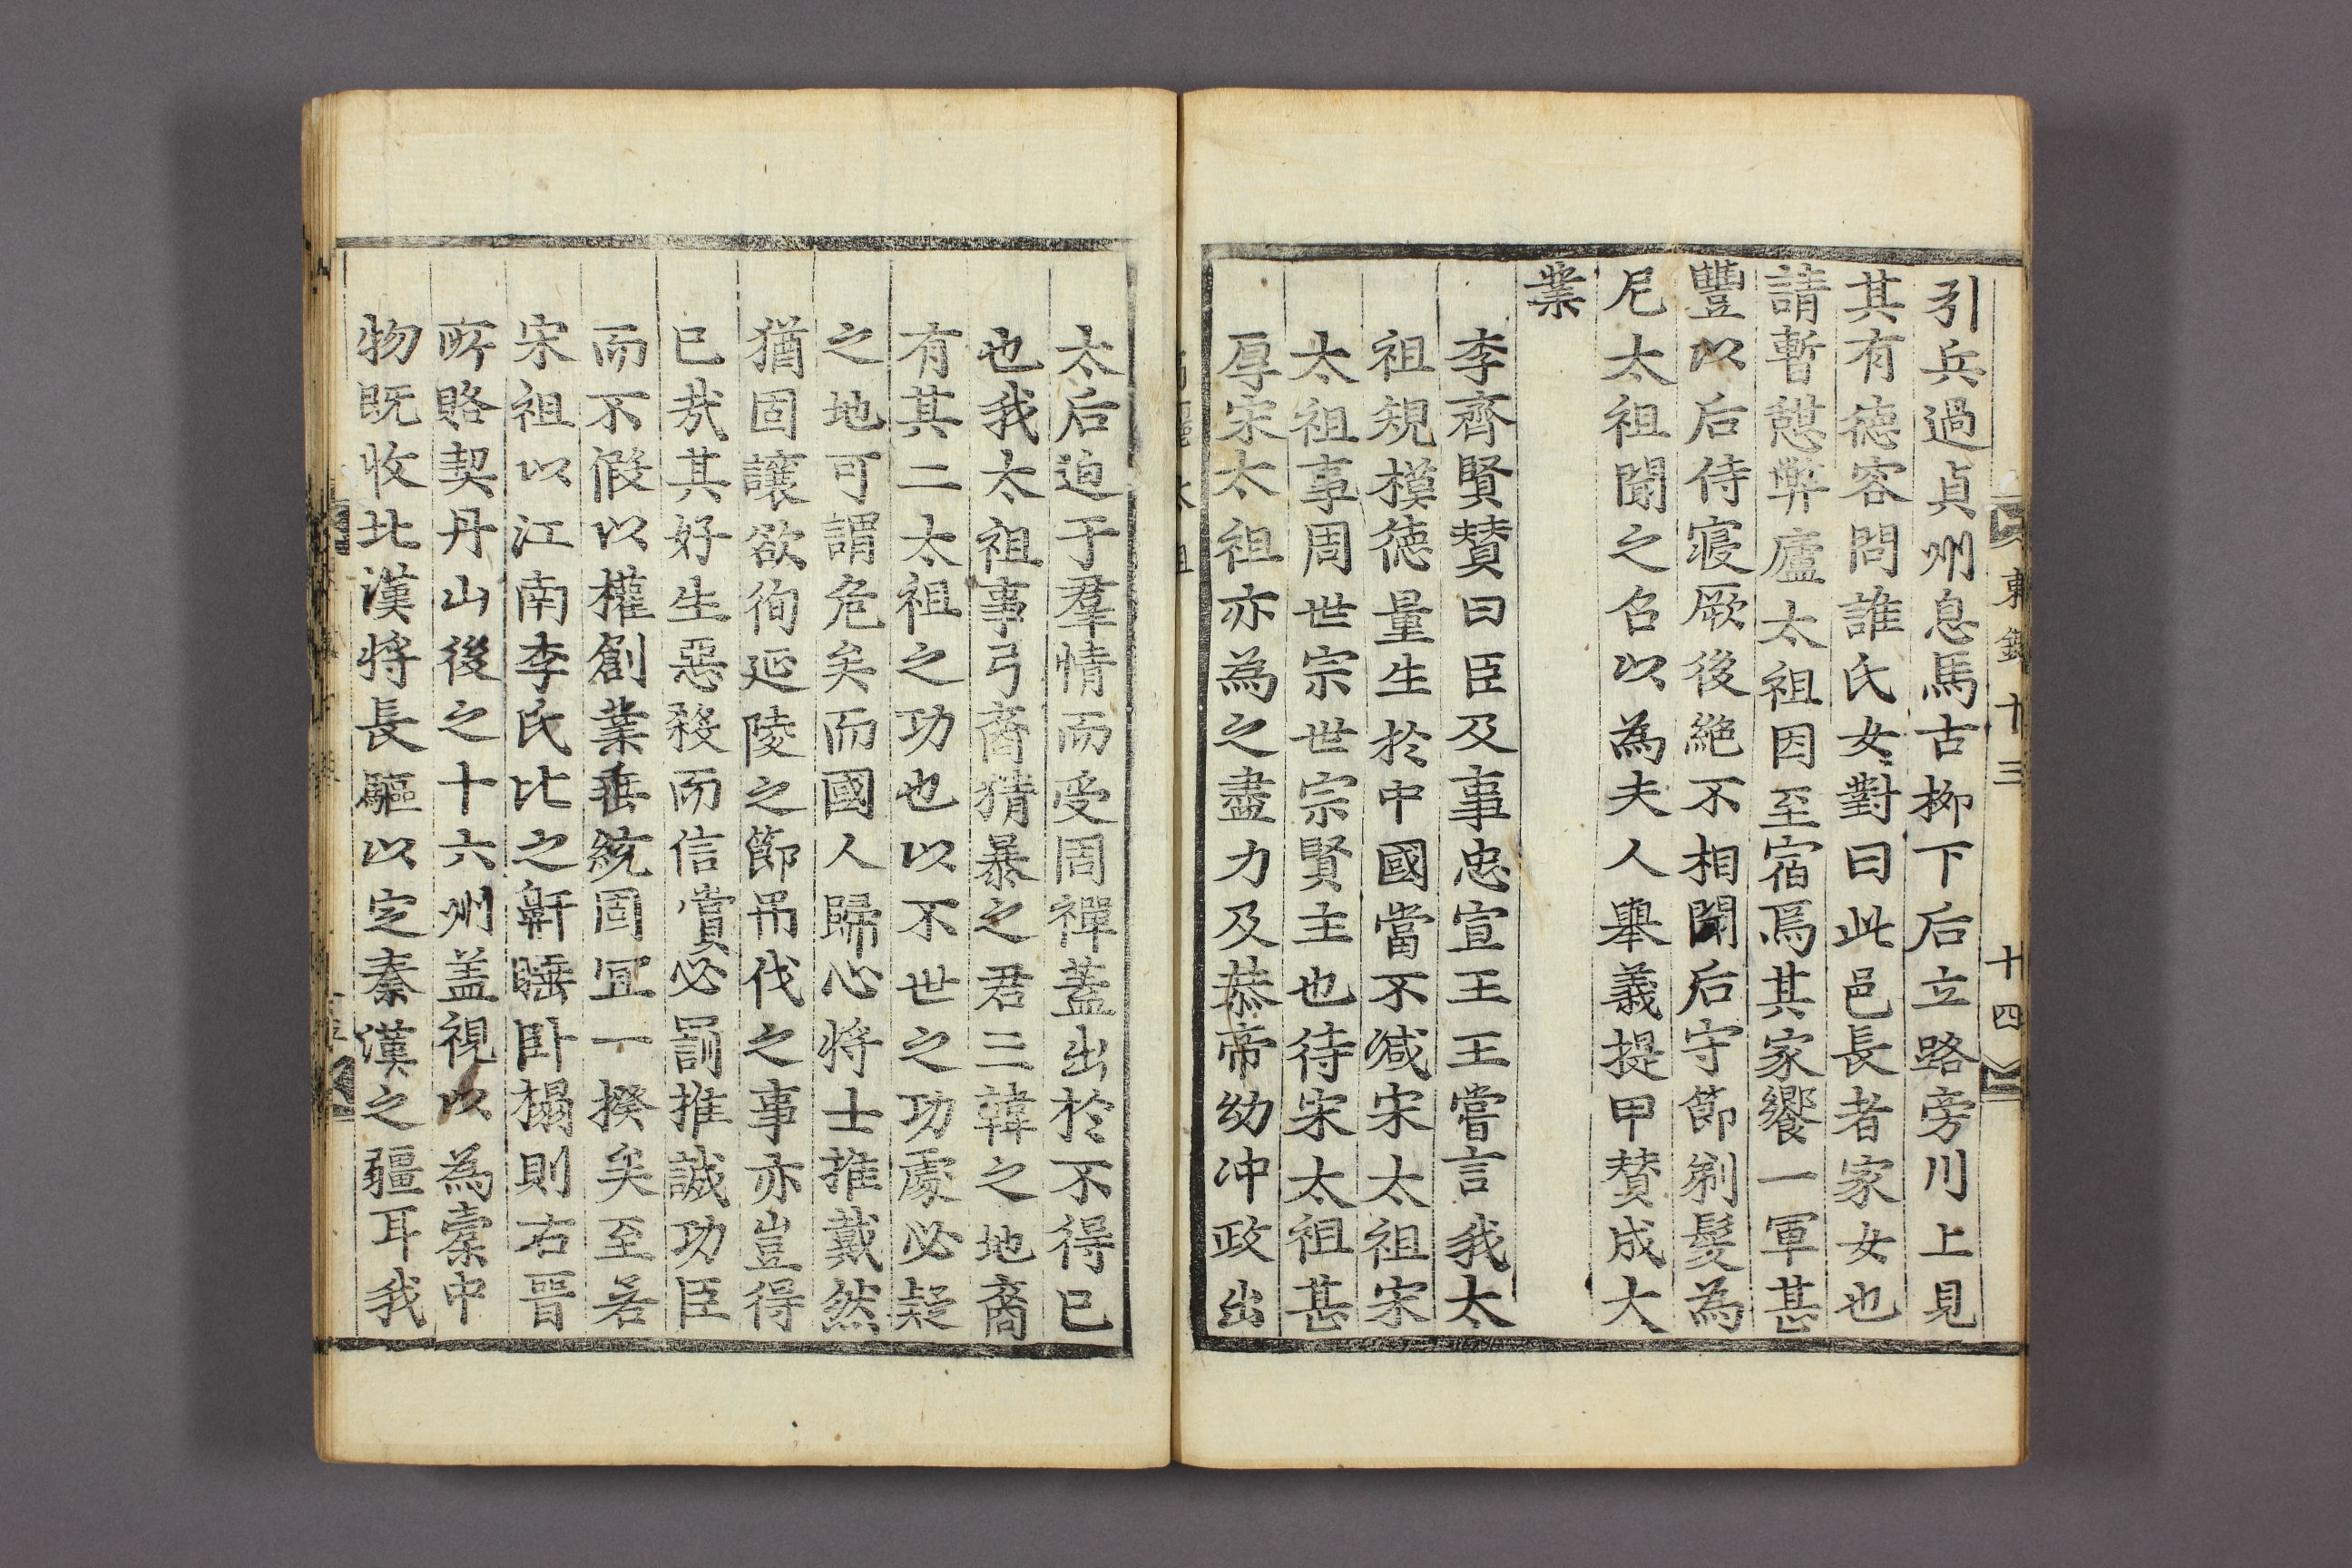 引兵過貞州息馬古栁下后立路旁川上見
其有德容問誰氏女對曰此邑長者家女也
請暫憇弊廬太祖因至宿焉其家饗一軍甚
豐以后侍寢厥後絶不相聞后守節剃髮為
尼太祖聞之召以為夫人舉義提甲賛成大
業
李齊賢賛曰臣及事忠宣王王嘗言我太
祖規模德量生於中國當不减宋太祖宋
太祖事周世宗世宗賢主也待宋太祖甚
厚宋太祖亦為之盡力及恭帝幼冲政出
太后迫于羣情而受周禪蓋出於不得已
也我太祖事弓裔猜暴之君三韓之地裔
有其二太祖之功也以不世之功處必疑
之地可謂危矣而國人歸心將士推戴然
猶固讓欲徇延陵之節吊伐之事亦豈得
已㢤其好生惡殺而信賞必罰推誠功臣
而不假以權創業垂統固冝一揆矣至若
宋祖以江南李氏比之鼾睡卧榻則右晉
所賂契丹山後之十六州盖視以為橐中
物既收北漢將長驅以定秦漢之疆耳我
東 十三 十四